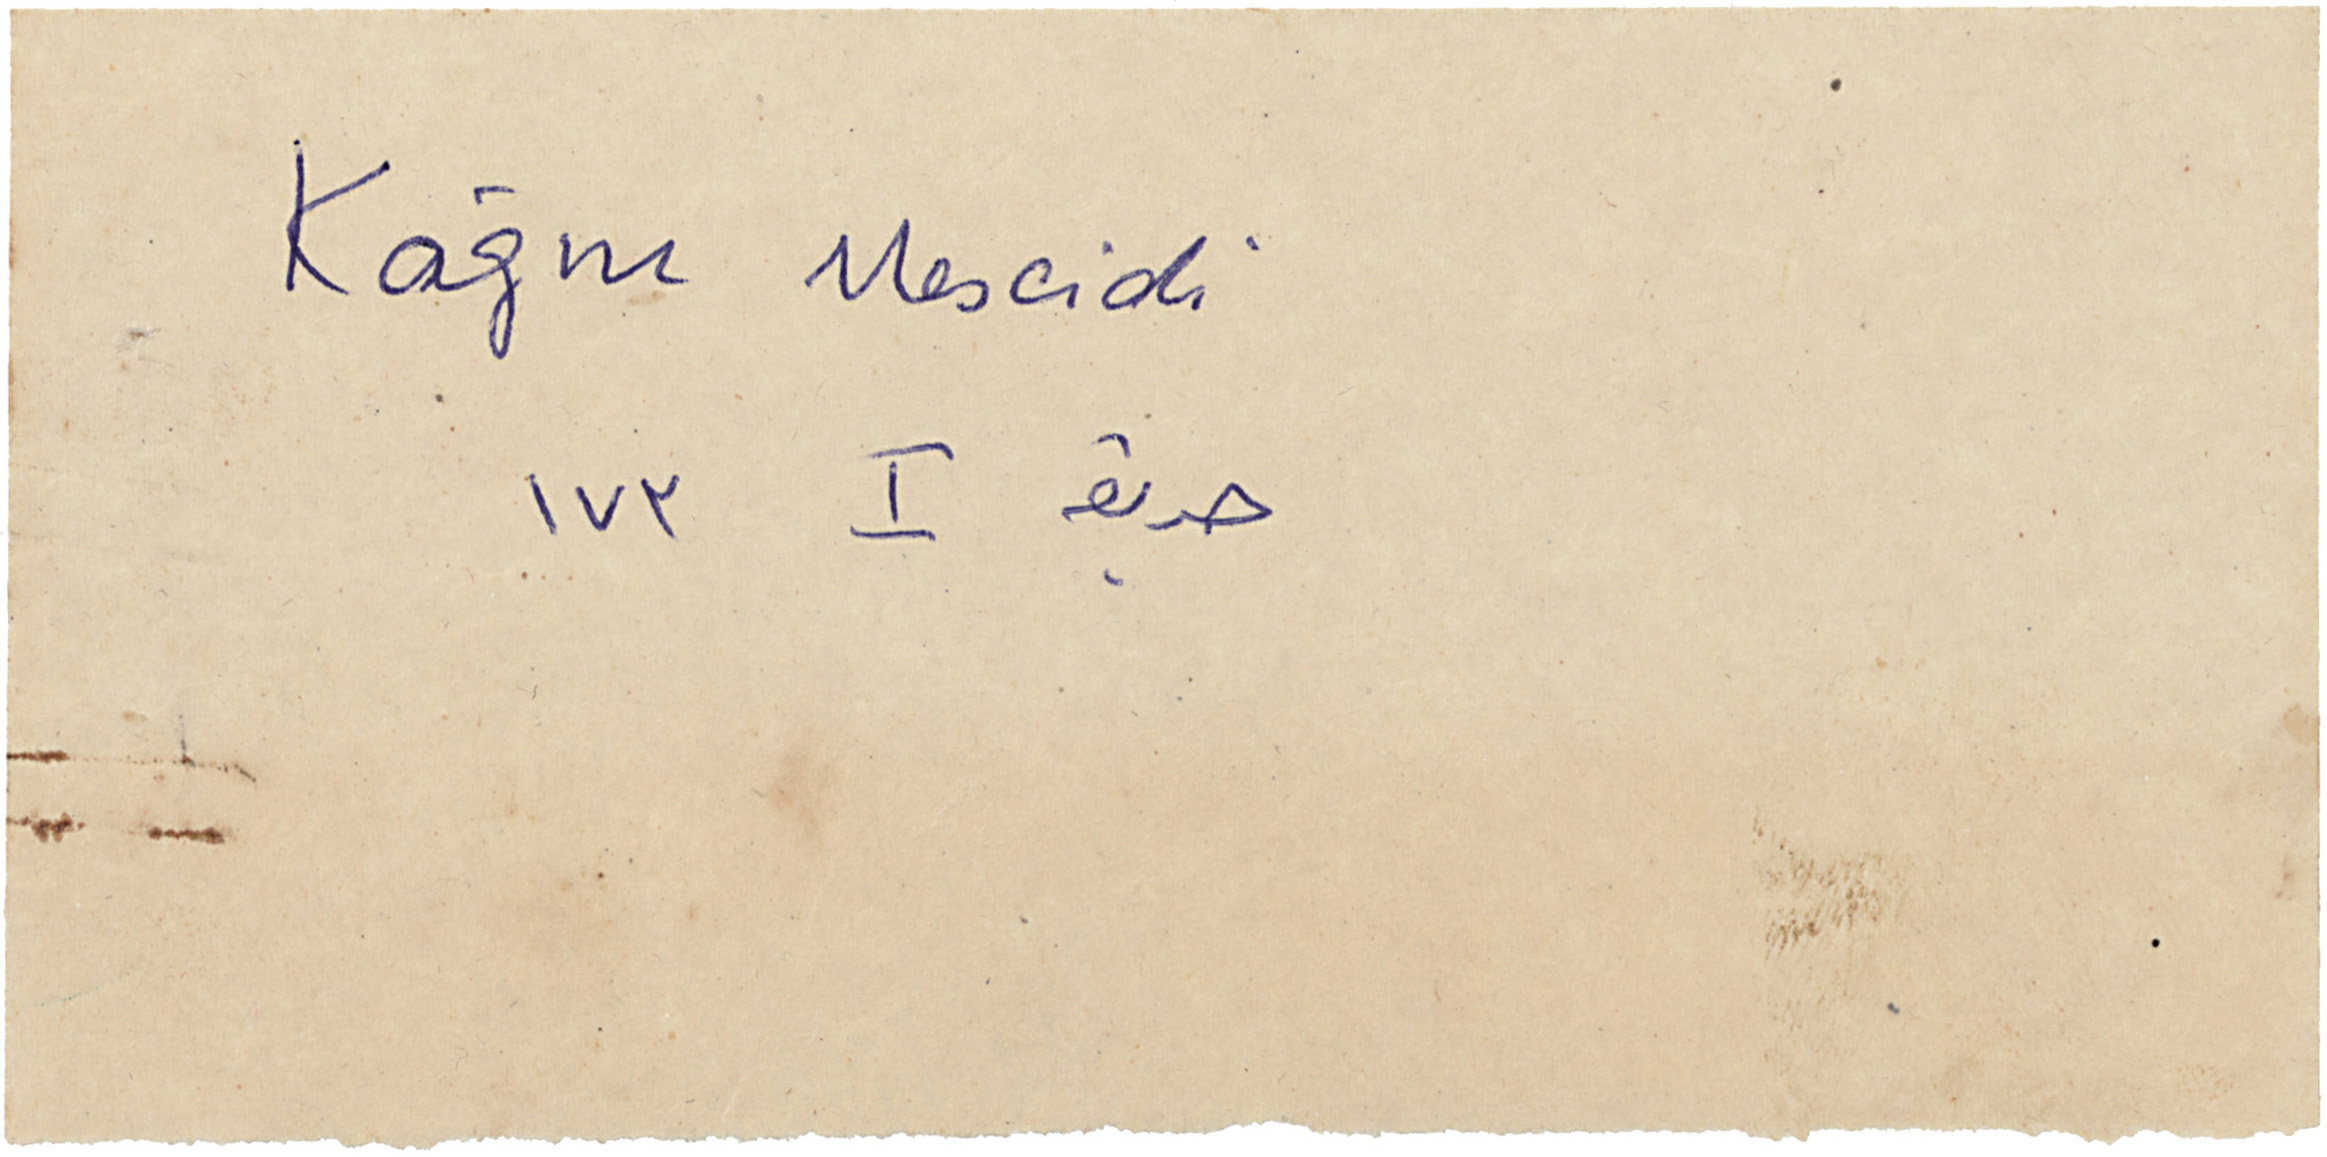 Kağnı Mescidi
حديقة I ١٧٢